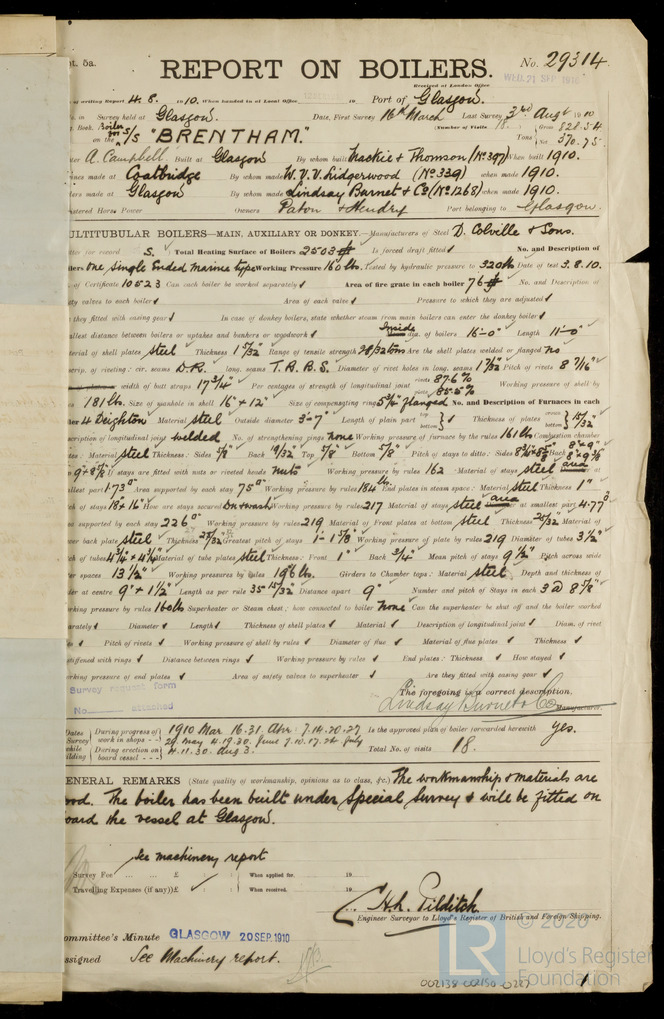 pt. 5a.
REPORT ON BOILERS.
No. 29314
Received at London Office
WED. 21 SEP 1910
of writing Report 4. 8. 1910. When handed in at Local Office 19 Port of Glasgow.
in Survey held at Glasgow. Date, First Survey 16th March Last Survey 3rd Augt 1910
Book. Boiler (Number of Visits 18.) Gross 828.54
on the S/S "BRENTHAM." Tons Net 370.75
A. Campbell Built at Glasgow By whom built Mackie & Thomson (No 397) When built 1910.
ines made at Coatbridge By whom made W. V. V. Lidgerwood (No 329) when made 1910.
lers made at Glasgow By whom made Lindsay Burnet & Co (No 1268) when made 1910.
istered Horse Power Owners Paton & Hendry Port belonging to Glasgow.
ULTITUBULAR BOILERS—MAIN, AUXILIARY OR DONKEY.—Manufacturers of Steel D. Colville & Sons.
tter for record S. Total Heating Surface of Boilers 2503 Is forced draft fitted ✓ No. and Description of
ilers one single ended marine type Working Pressure 160 lbs. Tested by hydraulic pressure to 320 lbs Date of test 3.8.10.
of Certificate 10523 Can each boiler be worked separately ✓ Area of fire grate in each boiler 76 No. and Description of
ty valves to each boiler ✓ Area of each valve ✓ Pressure to which they are adjusted ✓
they fitted with easing gear ✓ In case of donkey boilers, state whether steam from main boilers can enter the donkey boiler ✓
allest distance between boilers or uptakes and bunkers or woodwork ✓ Inside dia. of boilers 16'-0" Length 11'-0"
terial of shell plates steel Thickness 1 5/32" Range of tensile strength 28/32 tons Are the shell plates welded or flanged no
scrip. of riveting: cir. seams D.R. long. seams T.R.B.S. Diameter of rivet holes in long. seams 1 7/32" Pitch of rivets 8 7/16"
width of butt straps 17 3/4" Per centages of strength of longitudinal joint rivets 87.6% plate 85.5% Working pressure of shell by
s 181 lbs. Size of manhole in shell 16" × 12" Size of compensating ring 5 3/4" flanged No. and Description of Furnaces in each
iler 4 Deighton Material steel Outside diameter 3'-7" Length of plain part top bottom ✓ Thickness of plates crown bottom 15/32"
scription of longitudinal joint welded No. of strengthening rings none Working pressure of furnace by the rules 161 lbs Combustion chamber
tes: Material steel Thickness: Sides 5/8" Back 19/32" Top 5/8" Bottom 5/8" Pitch of stays to ditto: Sides Back
If stays are fitted with nuts or riveted heads nuts Working pressure by rules 162 Material of stays steel area at
allest part 1.73 Area supported by each stay 75 Working pressure by rules 184 lbs End plates in steam space: Material steel Thickness 1"
ch of stays 18 × 16" How are stays secured Working pressure by rules 217 Material of stays steel area at smallest part 4.77
supported by each stay 226 Working pressure by rules 219 Material of Front plates at bottom steel Thickness 25/32" Material of
wer back plate steel Thickness 25/32" Greatest pitch of stays Working pressure of plate by rules 219 Diameter of tubes 3 1/2"
ch of tubes 4 3/4 × 4 3/4" Material of tube plates steel Thickness: Front 1" Back 3/4" Mean pitch of stays 9 1/2" Pitch across wide
ter spaces 13 1/2" Working pressures by rules 196 lbs. Girders to Chamber tops: Material steel Depth and thickness of
der at centre 9" × 1 1/2" Length as per rule 35 15/32" Distance apart 9" Number and pitch of Stays in each 3 @ 8 7/8"
orking pressure by rules 160 lbs Superheater or Steam chest; how connected to boiler none Can the superheater be shut off and the boiler worked
arately ✓ Diameter ✓ Length ✓ Thickness of shell plates ✓ Material ✓ Description of longitudinal joint ✓ Diam. of rivet
es ✓ Pitch of rivets ✓ Working pressure of shell by rules ✓ Diameter of flue ✓ Material of flue plates ✓ Thickness ✓
stiffened with rings ✓ Distance between rings ✓ Working pressure by rules ✓ End plates: Thickness ✓ How stayed ✓
rking pressure of end plates ✓ Area of safety valves to superheater ✓ Are they fitted with easing gear ✓
Survey request form
No. attached
The foregoing is a correct description,
Lindsay Burnet & Co Manufacturer.
Dates of Survey while building
During progress of work in shops - - 1910 Mar. 16. 31. Apr. 7. 14. 20. 27 Is the approved plan of boiler forwarded herewith yes.
29. May 4. 19. 30. June 7. 10. 17. 24. July
During erection on board vessel - - - 4. 11. 30. Aug. 3. Total No. of visits 18.
GENERAL REMARKS (State quality of workmanship, opinions as to class, &c.) The workmanship & materials are
ood. The boiler has been built under Special Survey & will be fitted on
oard the vessel at Glasgow.
See machinery report
Survey Fee ... ... £ : : When applied for, 19
Travelling Expenses (if any) £ : : When received, 19
H. h. Pilditch.
Engineer Surveyor to Lloyd's Register of British and Foreign Shipping.
ommittee's Minute GLASGOW 20 SEP. 1910
ssigned See Machinery report.
© 2020
LR
Lloyd's Register
Foundation
002138-002150-0227
1